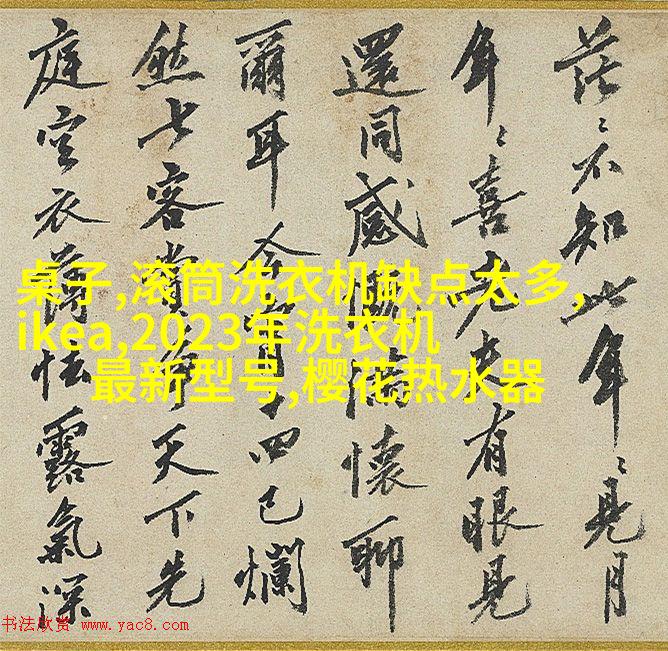 茫〻不知此年〻見月
年〻喜老夫有眼見
還同感慨滿懷聊
爾耳今宵十四已爛
然七客賞天下先
庭空衣薄怯露氣深
桌子,滚筒洗衣机缺点太多,
ikea,2023年洗衣机
最新型号,樱花热水器
书法欣赏 www.yac8.com